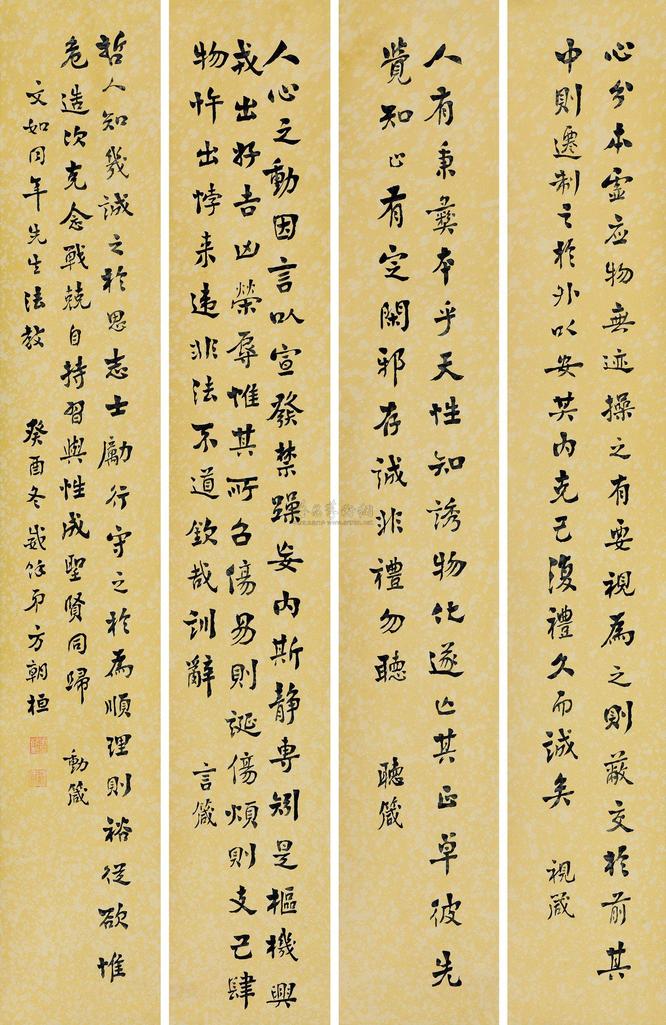 心兮本虛应物無迹操之有要視為之則蔽交於前其
中則遷制之於外以安其內克己復禮久而誠矣 視箴
人有秉彝本乎天性知誘物化遂亡其正卓彼先
覺知止有定閑邪存誠非禮勿聽 聽箴
人心之動因言以宣發禁躁妄內斯靜專矧是樞機興
戎出好吉凶榮辱惟其所召傷易則誕傷煩則支己肆
物忤出悖来違非法不道欽哉訓辭 言箴
哲人知幾誠之於思志士勵行守之於為順理則裕從欲惟
危造次克念戰兢自持習與性成聖賢同歸 動箴
文如同年先生法教 癸酉冬 弟方朝桓